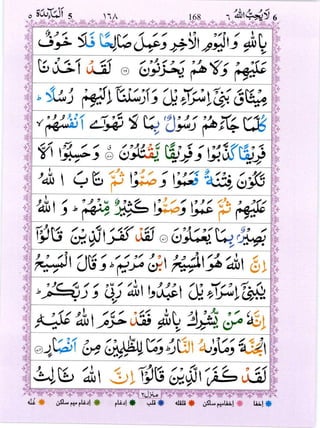 لَا يُحِبُّ اللهُ ٦ 168 ١٦٨ اَلْمَآئِدَة ٥
بِاللّٰهِ وَ الْيَوْمِ الْاٰخِرِ وَعَمِلَ صَالِحًا فَلَا خَوْفٌ
عَلَيْهِمْ وَلَا هُمْ يَحْزَنُوْنَ ۝ لَقَدْ اَخَذْنَا
مِيْثَاقَ بَنِيْٓ اِسْرَآءِيْلَ وَاَرْسَلْنَآ اِلَيْهِمْ رُسُلًا ؕ
كُلَّمَا جَآءَهُمْ رَسُوْلٌۢ بِمَا لَا تَهْوٰٓى اَنْفُسُهُمْ ۙ
فَرِيْقًا كَذَّبُوْا وَ فَرِيْقًا يَّقْتُلُوْنَ ۝ وَ حَسِبُوْٓا اَلَّا
تَكُوْنَ فِتْنَةٌ فَعَمُوْا وَ صَمُّوْا ثُمَّ تَابَ اللّٰهُ
عَلَيْهِمْ ثُمَّ عَمُوْا وَ صَمُّوْا كَثِيْرٌ مِّنْهُمْ ؕ وَ اللّٰهُ
بَصِيْرٌۢ بِمَا يَعْمَلُوْنَ ۝ لَقَدْ كَفَرَ الَّذِيْنَ قَالُوْٓا
اِنَّ اللّٰهَ هُوَ الْمَسِيْحُ ابْنُ مَرْيَمَ ؕ وَ قَالَ الْمَسِيْحُ
يٰبَنِيْٓ اِسْرَآءِيْلَ اعْبُدُوا اللّٰهَ رَبِّيْ وَ رَبَّكُمْ ؕ
اِنَّهٗ مَنْ يُّشْرِكْ بِاللّٰهِ فَقَدْ حَرَّمَ اللّٰهُ عَلَيْهِ
الْجَنَّةَ وَ مَاْوٰىهُ النَّارُ ؕ وَ مَا لِلظّٰلِمِيْنَ مِنْ اَنْصَارٍ ۝
لَقَدْ كَفَرَ الَّذِيْنَ قَالُوْٓا اِنَّ اللّٰهَ ثَالِثُ
منزل ٢
اخفا اخفا میم ساکن قلقلہ قلب ادغام ادغام میم ساکن غنّہ